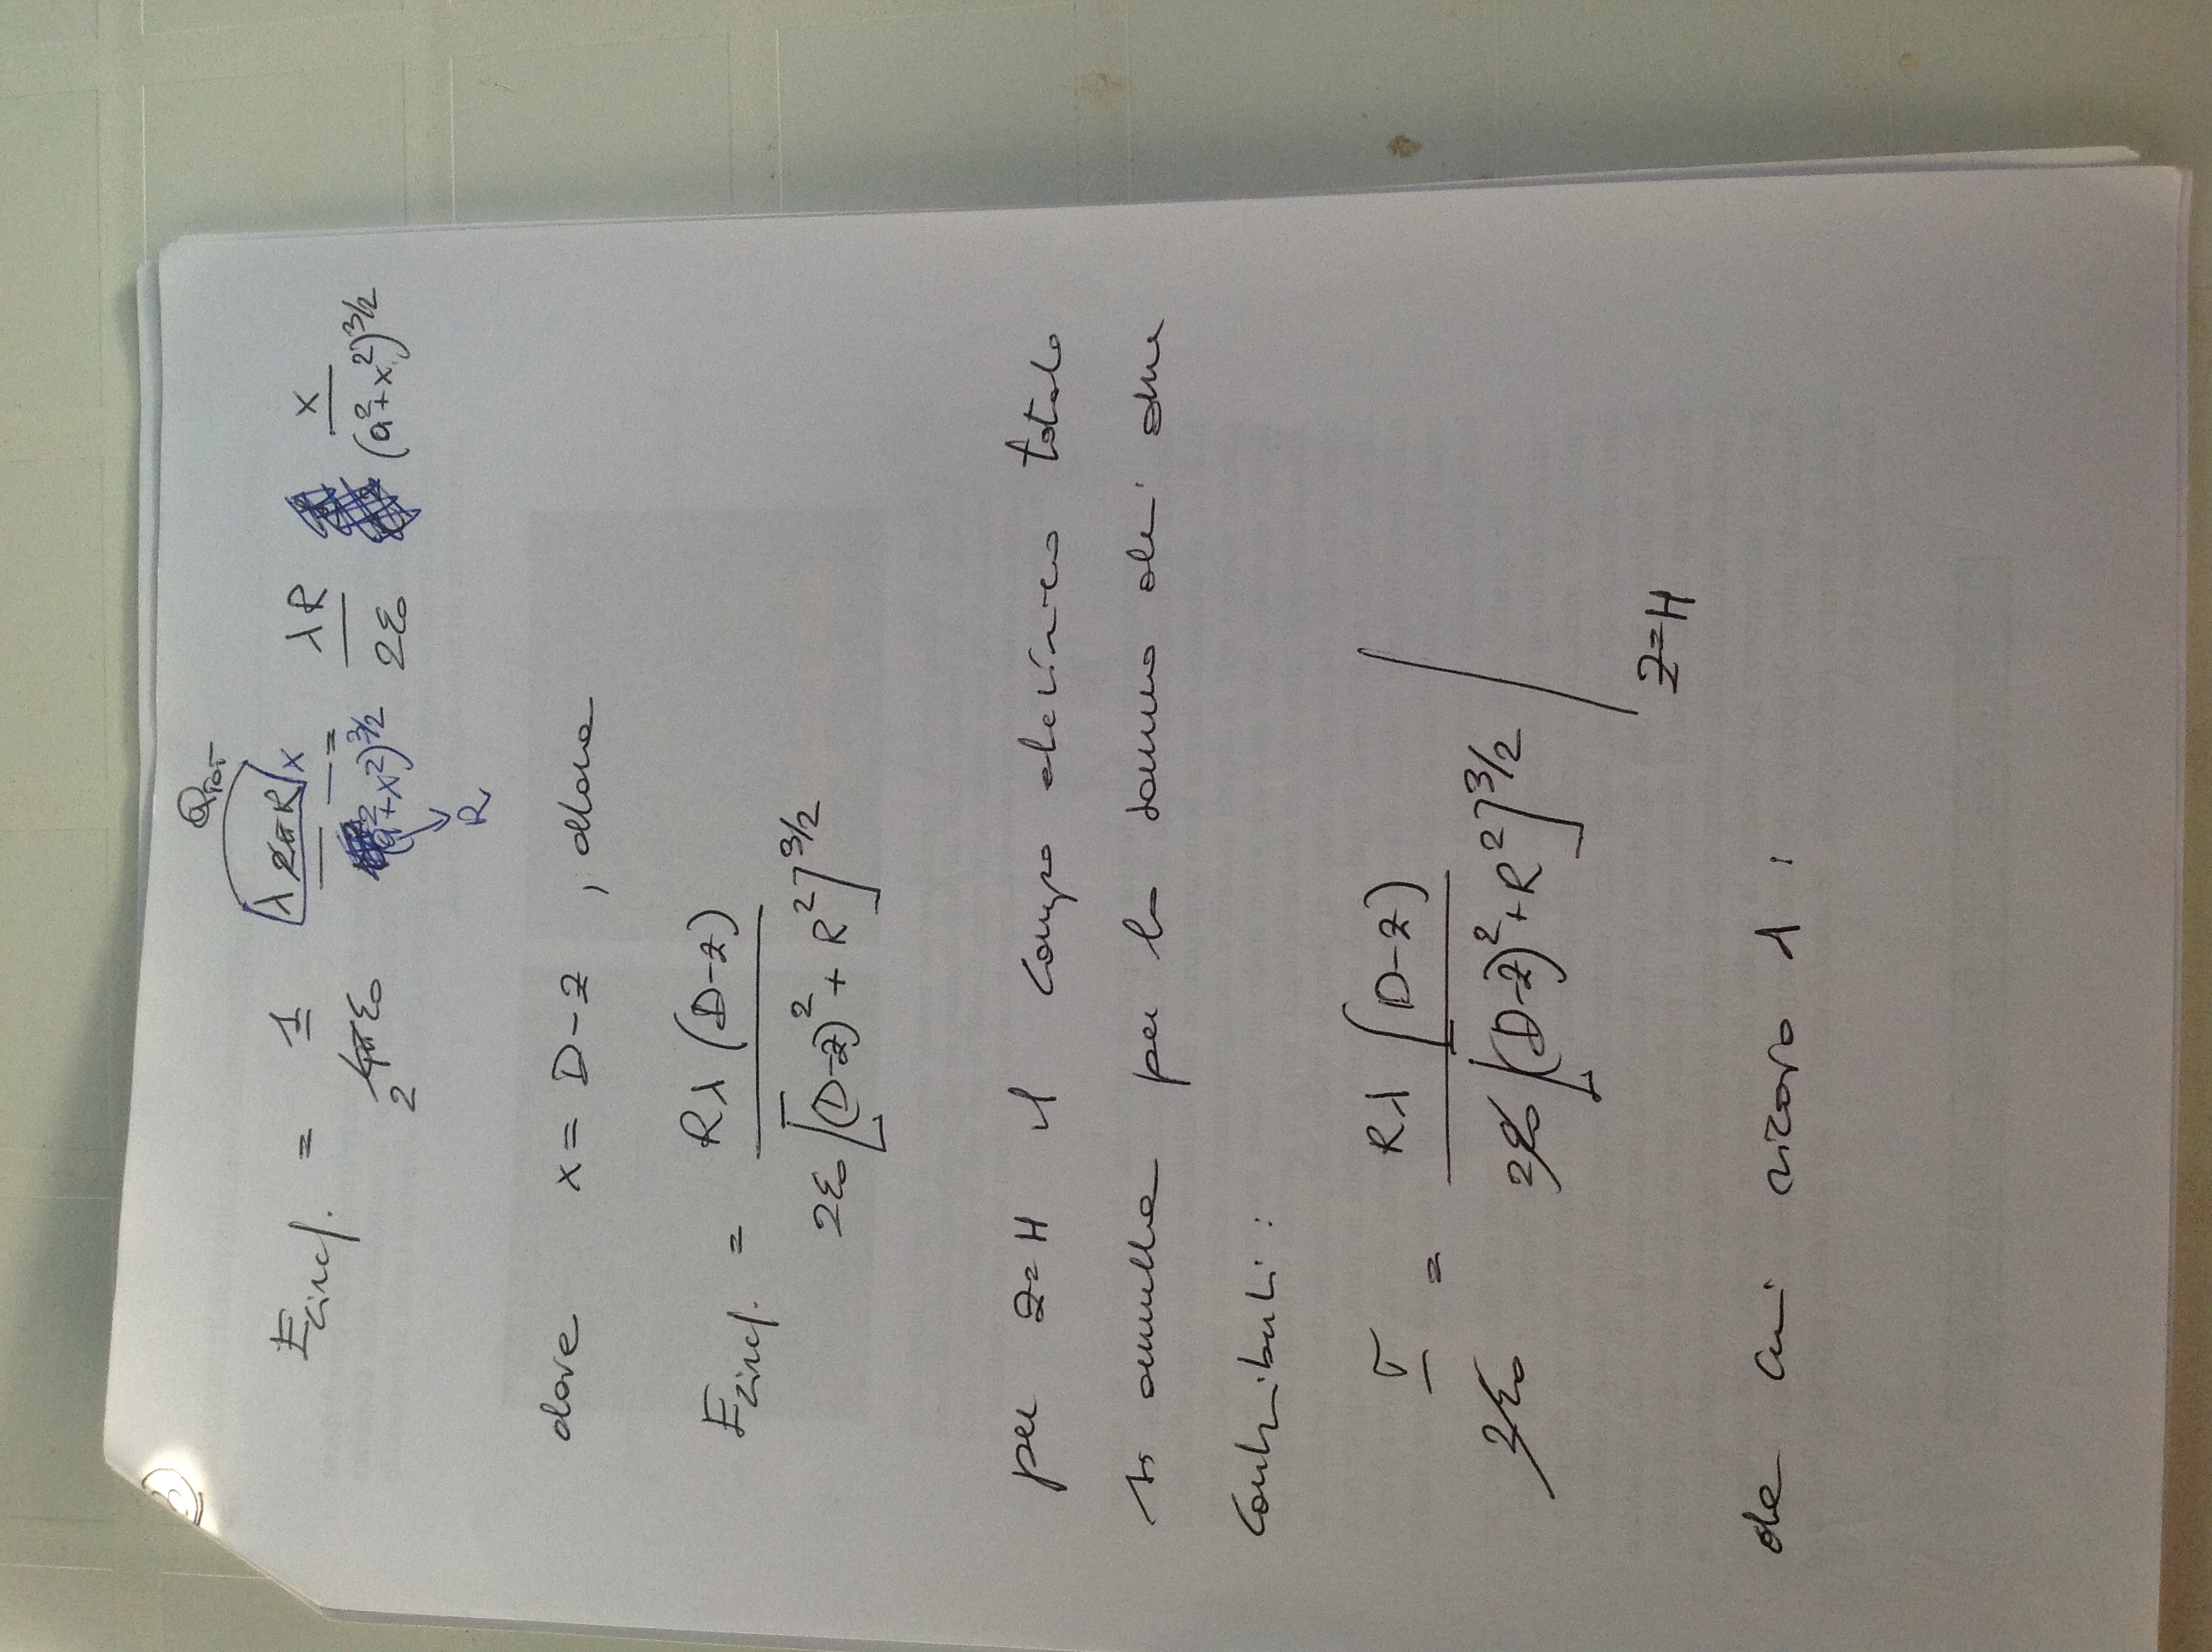 Q_TOT
E_circf. = 1/(2 4π ε₀) λ 2π R x/(a²+x²)^3/2 = λR/2ε₀ x/(a²+x²)^3/2
R
dove x = D-z , allora
E_circf. = Rλ (D-z) / 2ε₀ [(D-z)² + R²]^3/2
per z=H il campo elettrico totale
si annulla per la somma dei due
contributi :
σ/2ε₀ = Rλ (D-z) / 2ε₀ [(D-z)² + R²]^3/2 | z=H
da cui ricavo λ :